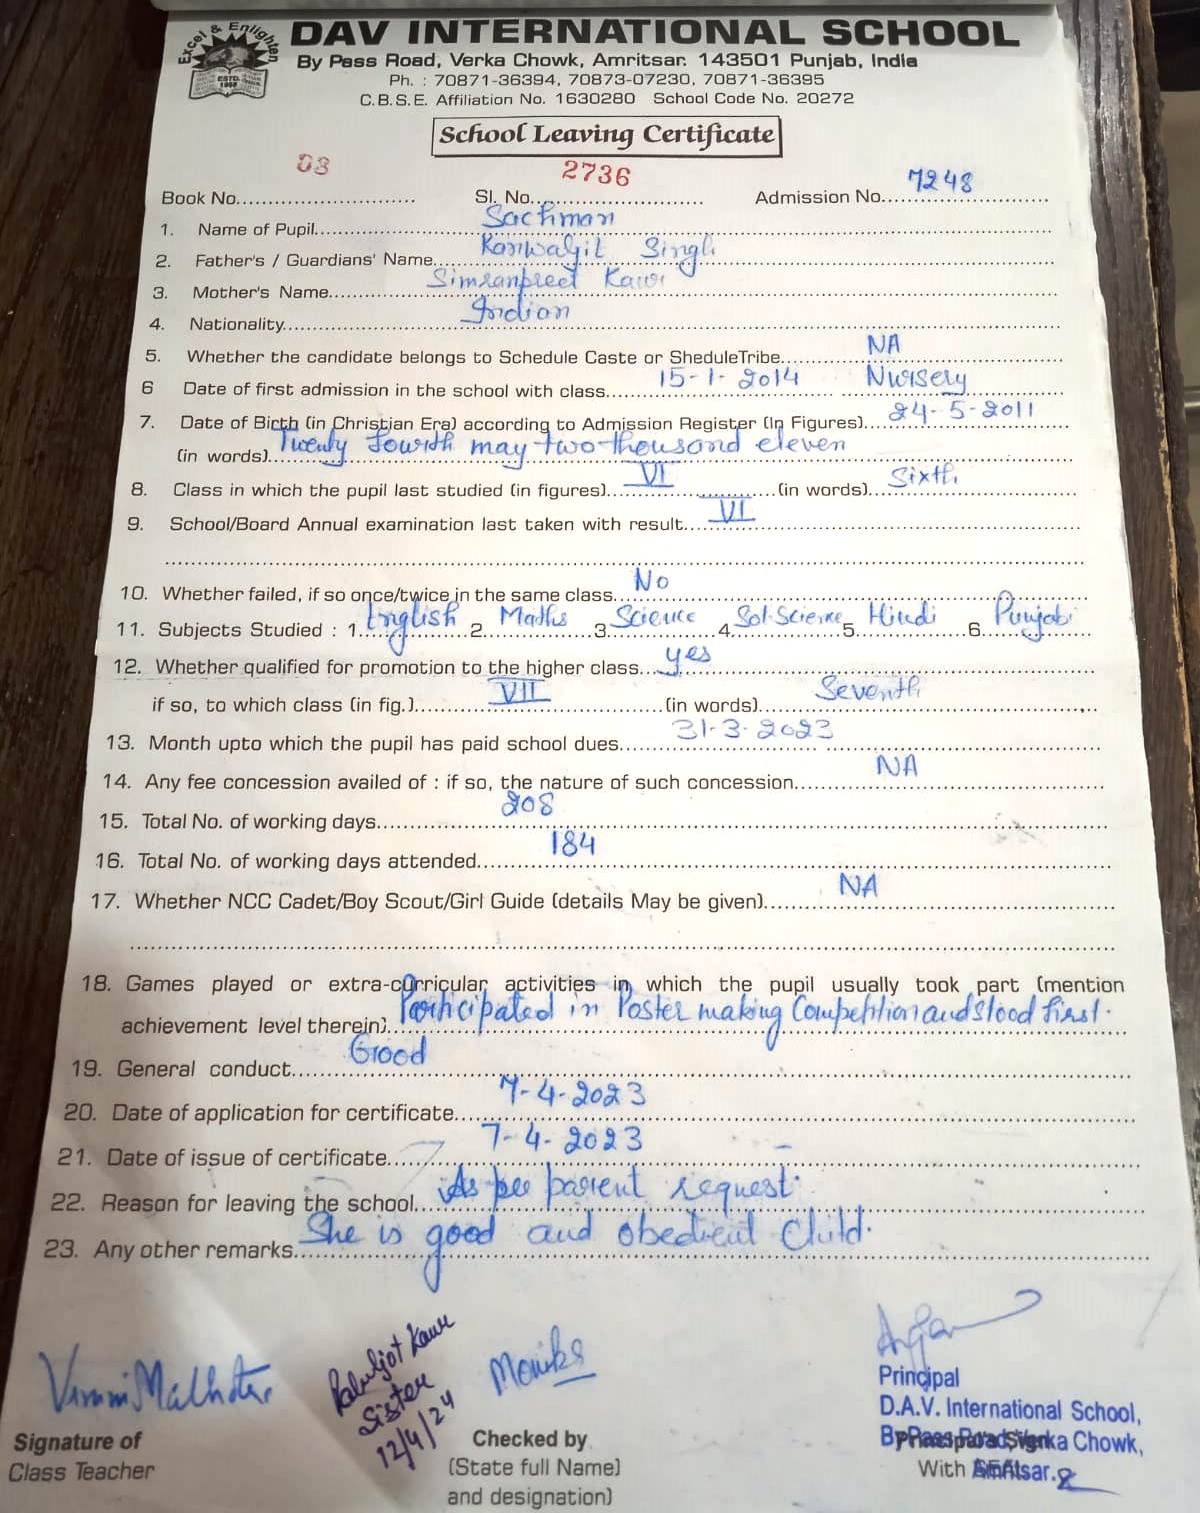 Excel & Enlighten
ESTD.
DAV INTERNATIONAL SCHOOL
By Pass Road, Verka Chowk, Amritsar. 143501 Punjab, India
Ph. : 70871-36394, 70873-07230, 70871-36395
C.B.S.E. Affiliation No. 1630280 School Code No. 20272
School Leaving Certificate
Book No. 03 Sl. No. 2736 Admission No. 7248
1. Name of Pupil Sachman
2. Father's / Guardians' Name Kanwaljit Singh
3. Mother's Name Simranpreet Kaur
4. Nationality Indian
5. Whether the candidate belongs to Schedule Caste or SheduleTribe NA
6 Date of first admission in the school with class 15-1-2014 Nursery
7. Date of Birth (in Christian Era) according to Admission Register (In Figures) 24-5-2011
(in words) Twenty fourth may two thousand eleven
8. Class in which the pupil last studied (in figures) VI (in words) Sixth
9. School/Board Annual examination last taken with result VI
10. Whether failed, if so once/twice in the same class No
11. Subjects Studied : 1. English 2. Maths 3. Science 4. Sol.Science 5. Hindi 6. Punjabi
12. Whether qualified for promotion to the higher class yes
if so, to which class (in fig.) VII (in words) Seventh
13. Month upto which the pupil has paid school dues 31-3-2023
14. Any fee concession availed of : if so, the nature of such concession NA
15. Total No. of working days 208
16. Total No. of working days attended 184
17. Whether NCC Cadet/Boy Scout/Girl Guide (details May be given) NA
18. Games played or extra-curricular activities in which the pupil usually took part (mention
achievement level therein) Participated in Poster making Competition and stood first.
19. General conduct Good
20. Date of application for certificate 7-4-2023
21. Date of issue of certificate 7-4-2023
22. Reason for leaving the school As per parent request.
23. Any other remarks She is good and obedient Child.
Vimmi Malhotra
Kaur
Sister
12/4/24
Monika
Principal
D.A.V. International School,
By Pass Road, Verka Chowk,
Amritsar.
Signature of
Class Teacher
Checked by
(State full Name)
and designation)
Principal's Sign
With SEAL